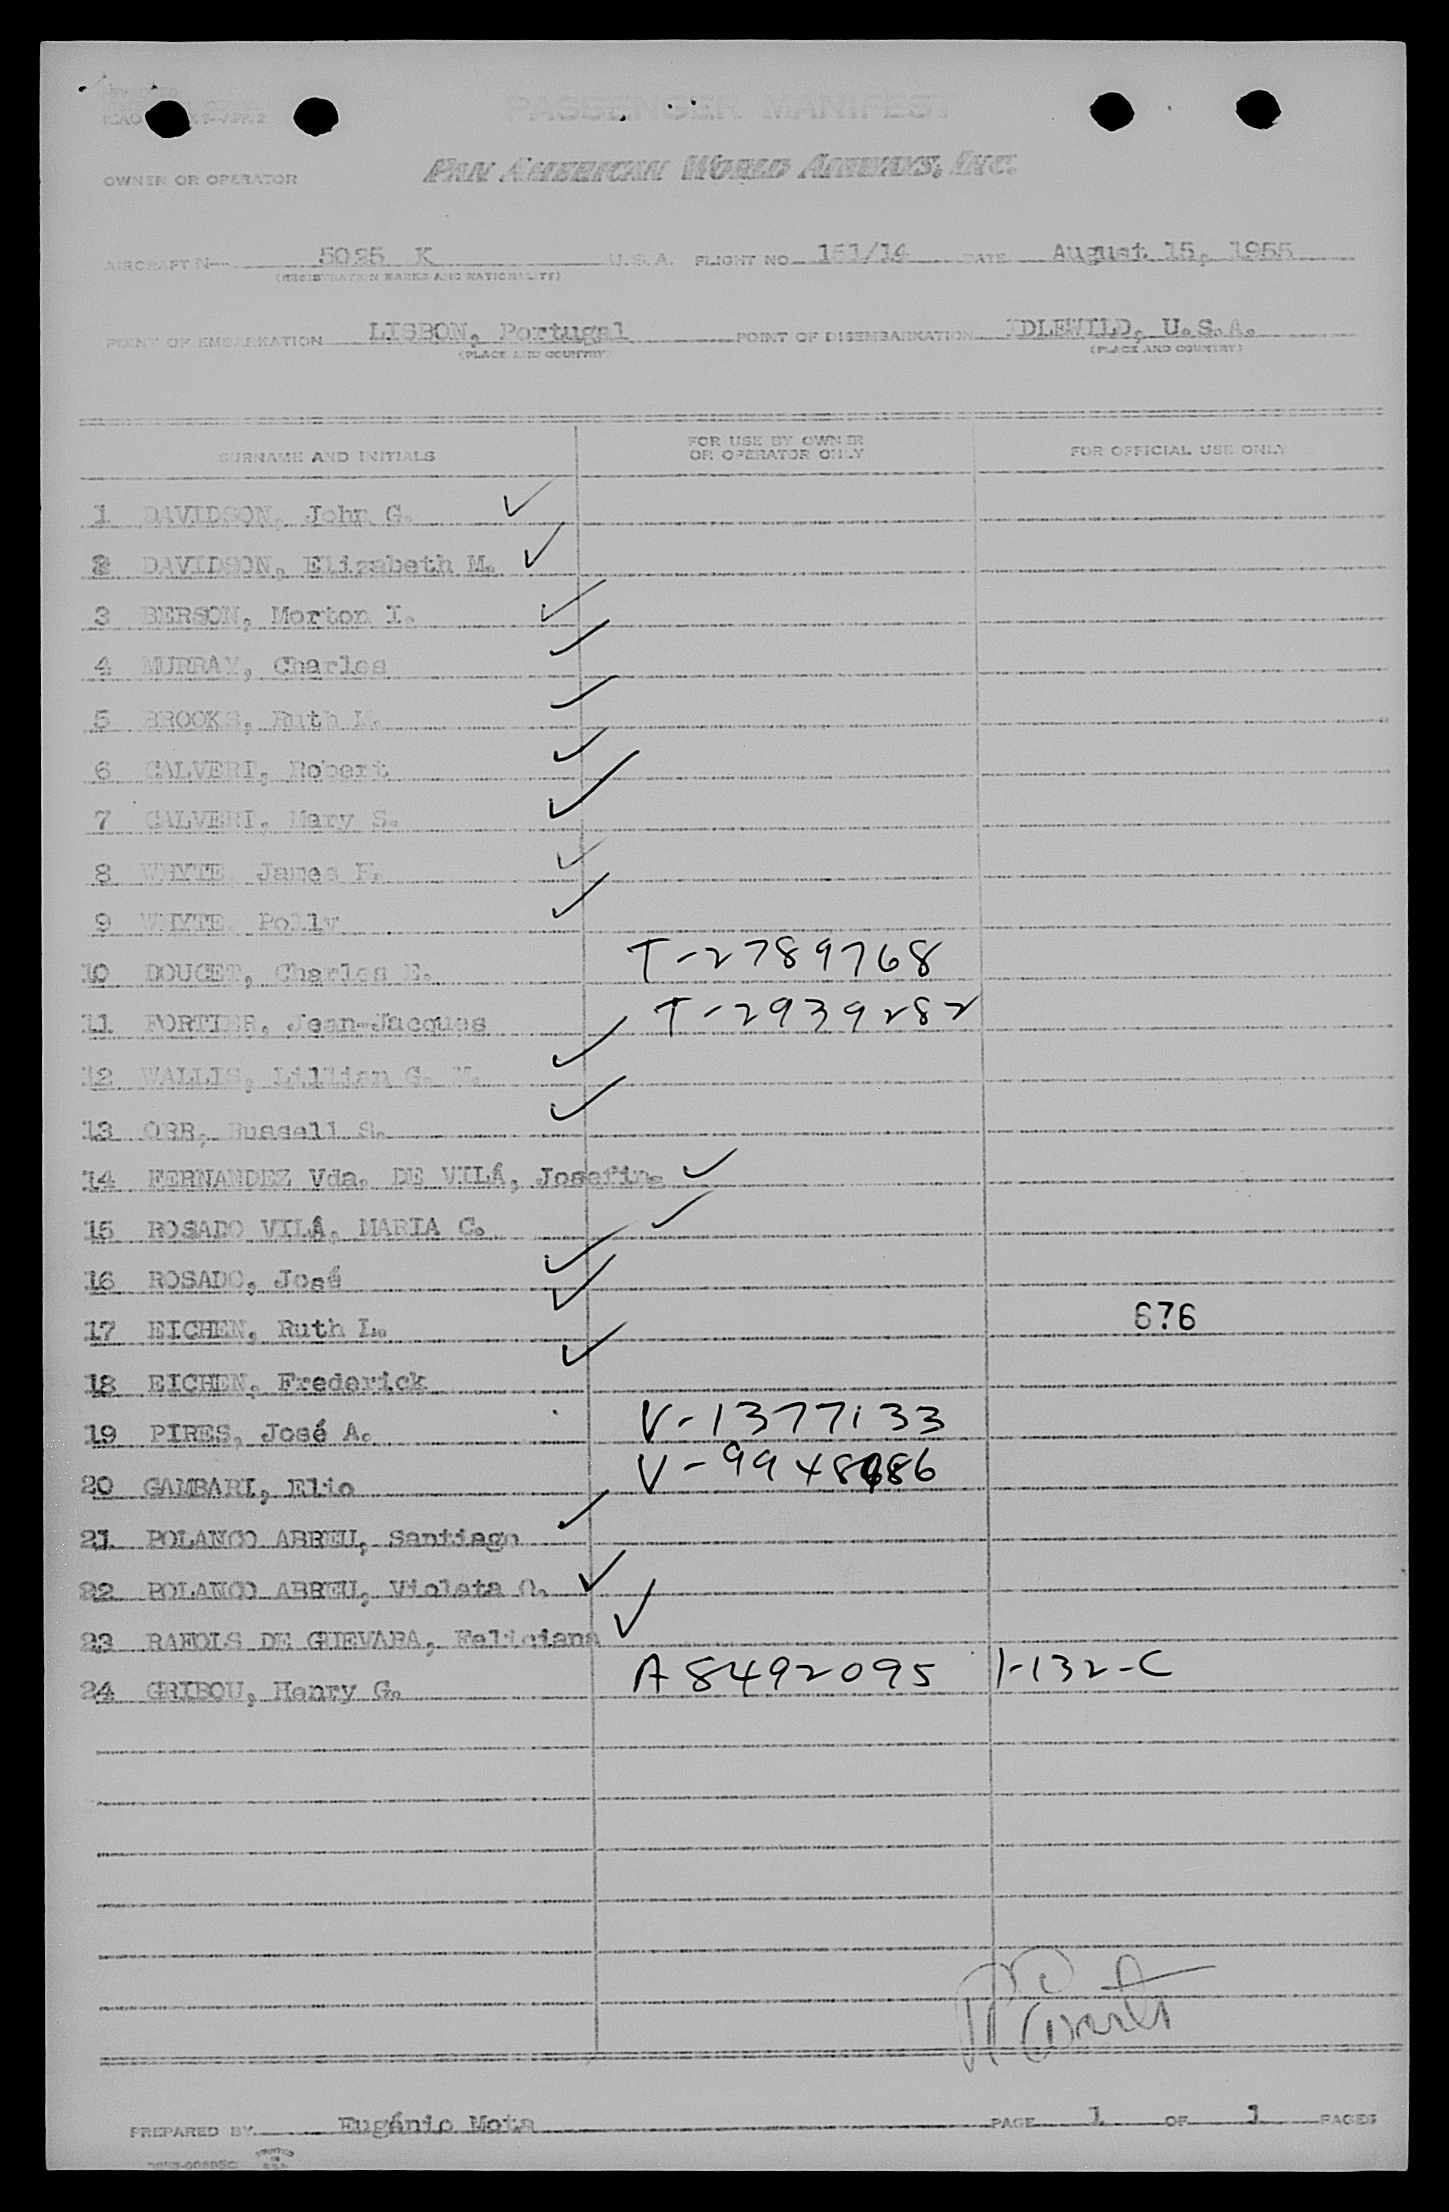 PASSENGER MANIFEST
ICAO
OWNER OR OPERATOR PAN AMERICAN WORLD AIRWAYS, INC.
AIRCRAFT N 5025 K U.S.A. FLIGHT NO. 151/14 DATE August 15, 1955
(REGISTRATION MARKS AND NATIONALITY)
POINT OF EMBARKATION LISBON, Portugal POINT OF DISEMBARKATION IDLEWILD, U.S.A.
(PLACE AND COUNTRY) (PLACE AND COUNTRY)
SURNAME AND INITIALS FOR USE BY OWNER OR OPERATOR ONLY FOR OFFICIAL USE ONLY
1 DAVIDSON, John G. ✓
2 DAVIDSON, Elizabeth M. ✓
3 BERSON, Morton I. ✓
4 MURRAY, Charles ✓
5 BROOKS, Ruth M. ✓
6 CALVERI, Robert ✓
7 CALVERI, Mary S. ✓
8 WHYTE, James F. ✓
9 WHYTE, Polly ✓
10 DOUCET, Charles E. T-2789768
11 FORTIER, Jean-Jacques T-2939282
12 WALLIS, Lillian G. ✓
13 ORR, Russell S. ✓
14 FERNANDEZ Vda. DE VILÁ, Josefina ✓
15 ROSADO VILÁ, MARIA C. ✓
16 ROSADO, José ✓
17 EICHEN, Ruth L. ✓ 676
18 EICHEN, Frederick ✓
19 PIRES, José A. V-1377133
20 GAMBARI, Elio V-9948686
21 POLANCO ABREU, Santiago ✓
22 POLANCO ABREU, Violeta O. ✓
23 RAHOLS DE GUEVARA, Feliciana ✓
24 GRIBOU, Henry G. A8492095 1-132-C
PREPARED BY Eugénio Mota PAGE 1 OF 1 PAGES
PRINTED IN U.S.A.